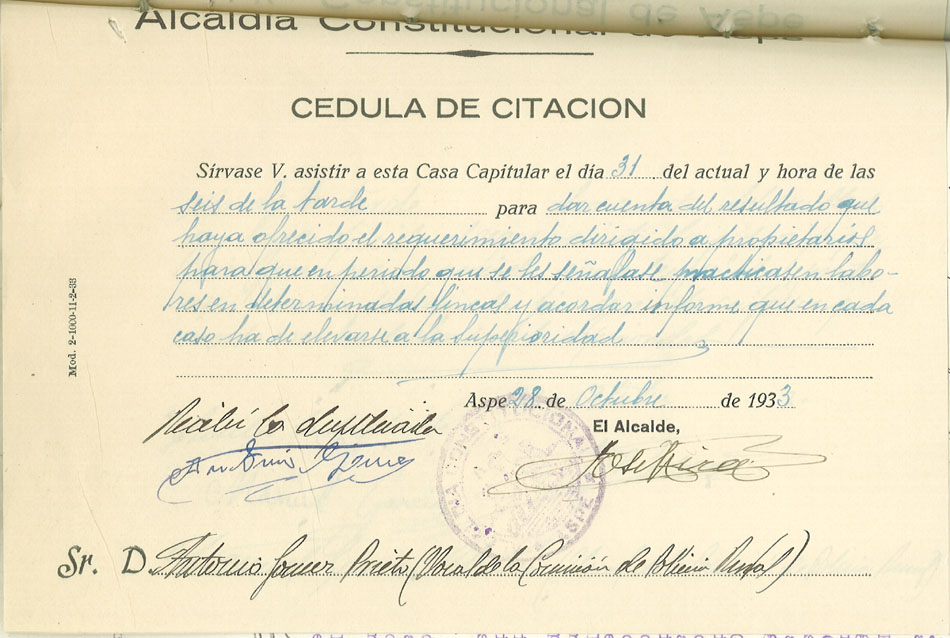 Alcaldía Constitucional de Aspe
CEDULA DE CITACION
Sírvase V. asistir a esta Casa Capitular el día 31 del actual y hora de las
seis de la tarde para dar cuenta del resultado que
haya ofrecido el requerimiento dirigido a propietarios
para que en periodo que se les señalase practicasen labo-
res en determinadas fincas y acordar informe que en cada
caso ha de elevarse a la Superioridad
Mod. 2-1000-11-2-33
Aspe 28 de Octubre de 1933
Recibí la duplicada
El Alcalde,
Antonio
Sr. D. Antonio Prieto (Vocal de la Comisión de Policia Rural)